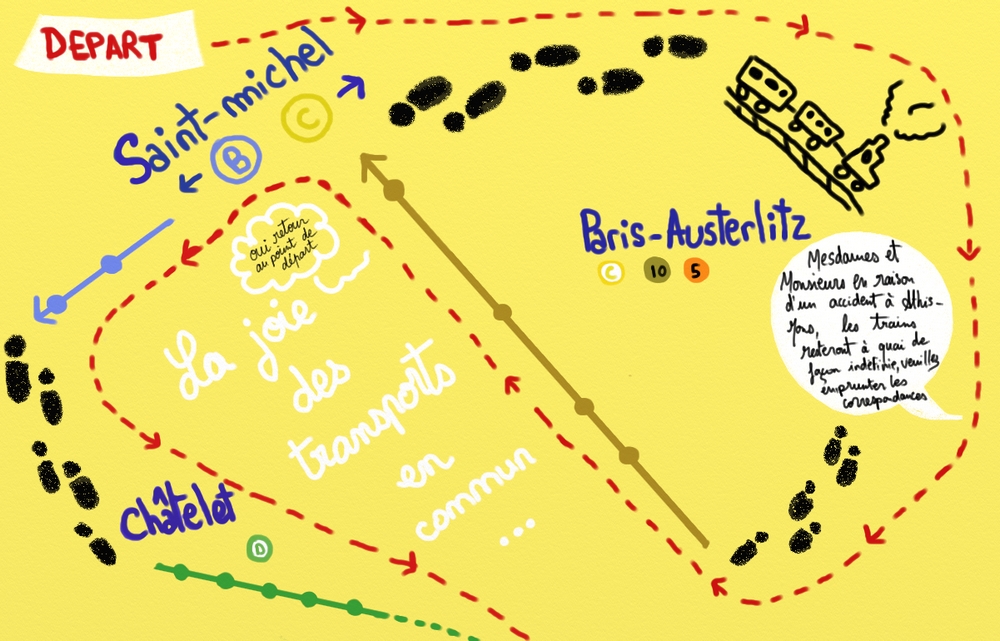 DEPART
Saint-michel
C
B
oui retour
au point de
départ
La joie
des
transports
en
commun
...
Paris-Austerlitz
C 10 5
Mesdames et
Monsieurs en raison
d'un accident à Athis-
Mons, les trains
resteront à quai de
façon indéfinie, veuillez
emprunter les
correspondances
Châtelet
D